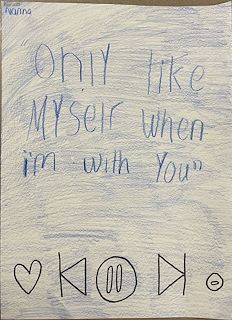 Only like
Myself when
i'm with You"